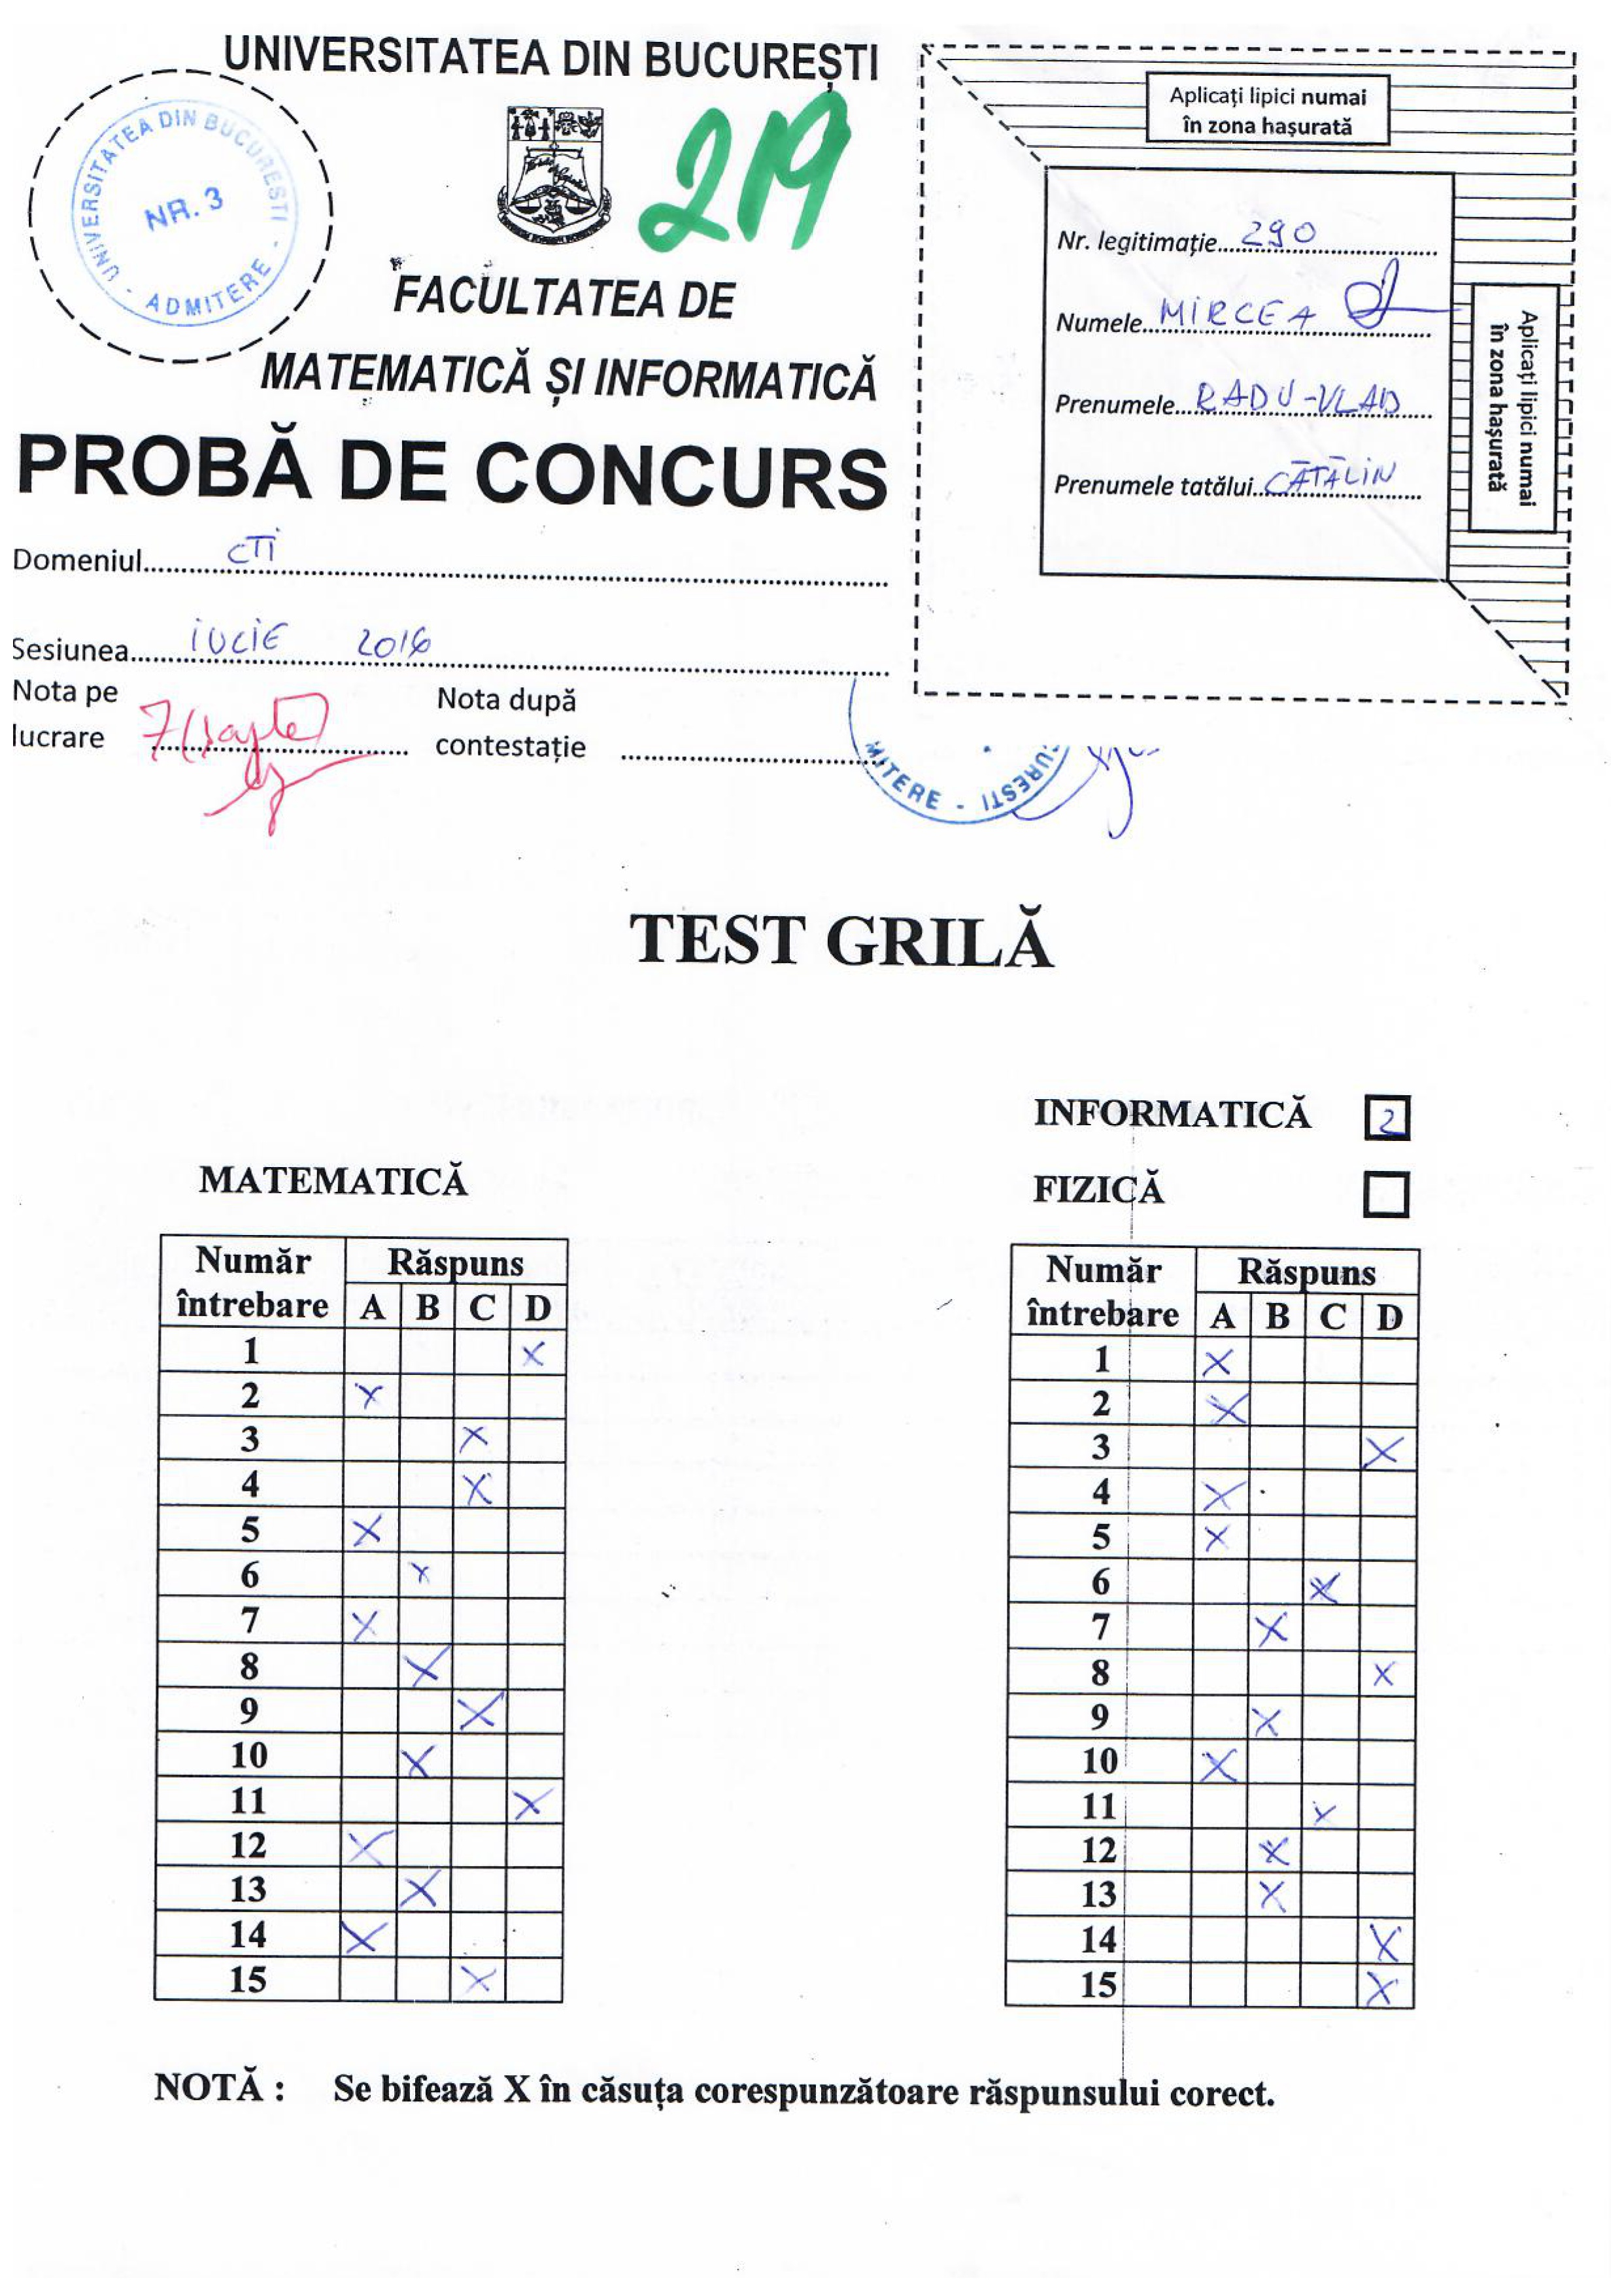 UNIVERSITATEA DIN BUCUREȘTI
UNIVERSITATEA DIN BUCUREȘTI - ADMITERE -
NR. 3
219
FACULTATEA DE
MATEMATICĂ ȘI INFORMATICĂ
PROBĂ DE CONCURS
Domeniul CTI
Sesiunea iULiE 2016
Nota pe lucrare 7 (șapte)
Nota după contestație
Aplicați lipici numai
în zona hașurată
Nr. legitimație 290
Numele MIRCEA
Prenumele RADU-VLAD
Prenumele tatălui CĂTĂLIN
Aplicați lipici numai
în zona hașurată
MITERE - URESTI
TEST GRILĂ
MATEMATICĂ
Număr întrebare Răspuns
A B C D
1 X
2 X
3 X
4 X
5 X
6 X
7 X
8 X
9 X
10 X
11 X
12 X
13 X
14 X
15 X
INFORMATICĂ 2
FIZICĂ
Număr întrebare Răspuns
A B C D
1 X
2 X
3 X
4 X
5 X
6 X
7 X
8 X
9 X
10 X
11 X
12 X
13 X
14 X
15 X
NOTĂ : Se bifează X în căsuța corespunzătoare răspunsului corect.